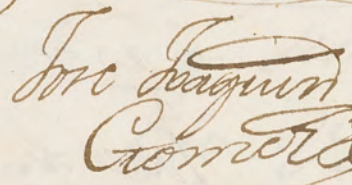 Jose Joaquin
Gomez